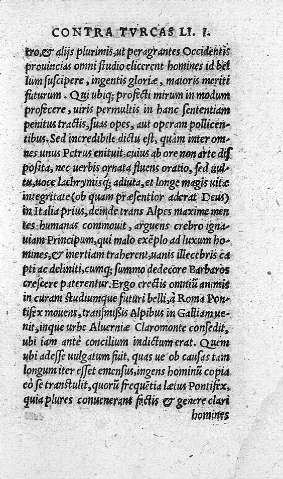 CONTRA TVRCAS LI. I.
tro, & alijs plurimis, ut peragrantes Occidentis
prouincias omni studio elicerent homines id bel
lum suscipere, ingentis gloriæ, maioris meriti
futurum. Qui ubiq; profecti mirum in modum
profecere, uiris permultis in hanc sententiam
penitus tractis, suas opes, aut operam pollicen-
tibus. Sed incredibile dictu est, quàm inter om
nes unus Petrus enituit, cuius ab ore non arte dis
posita, nec uerbis ornata fluens oratio, sed astu,
uoce lachrymisq; adiuta, et longe magis uitæ
integritate (ob quam præsentior aderat Deus)
in Italia prius, deinde trans Alpes maxime men
tes humanas commouit, arguens crebro igna-
uiam Principum, qui malo exemplo ad luxum ho-
mines, & inertiam traherent, uanis illecebris ca
pti ac deliniti, cumq; summo dedecore Barbaros
crescere paterentur. Ergo erectis omnium animis
in curam studiumque futuri belli, à Roma Pon-
tifex mouens, transmissis Alpibus in Galliam ue-
nit, inque urbe Aluerniæ Claromonte consedit,
ubi iam antè concilium indictum erat. Quum
ubi adesse uulgatum fuit, quas ue ob causas tam
longum iter esset emensus, ingens hominũ copia
eò se transtulit, quorũ frequẽtia lætus Pontifex,
quia plures conuenerant factis & genere clari
homines